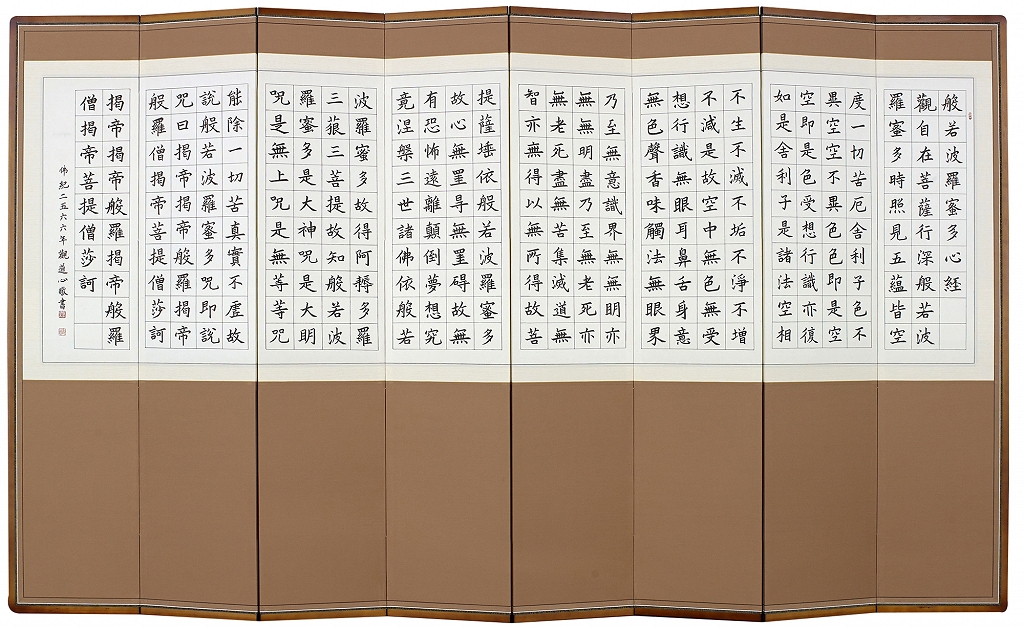 般若波羅蜜多心経
觀自在菩薩行深般若波
羅蜜多時照見五蘊皆空
度一切苦厄舍利子色不
異空空不異色色即是空
空即是色受想行識亦復
如是舍利子是諸法空相
不生不滅不垢不淨不增
不減是故空中無色無受
想行識無眼耳鼻舌身意
無色聲香味觸法無眼界
乃至無意識界無無明亦
無無明盡乃至無老死亦
無老死盡無苦集滅道無
智亦無得以無所得故菩
提薩埵依般若波羅蜜多
故心無罣㝵無罣碍故無
有恐怖遠離顛倒夢想究
竟涅槃三世諸佛依般若
波羅蜜多故得阿耨多羅
三藐三菩提故知般若波
羅蜜多是大神呪是大明
呪是無上呪是無等等呪
能除一切苦真實不虛故
說般若波羅蜜多呪即說
呪曰揭帝揭帝般羅揭帝
般羅僧揭帝菩提僧莎訶
揭帝揭帝般羅揭帝般羅
僧揭帝菩提僧莎訶
佛紀二五六六年觀道心敬書